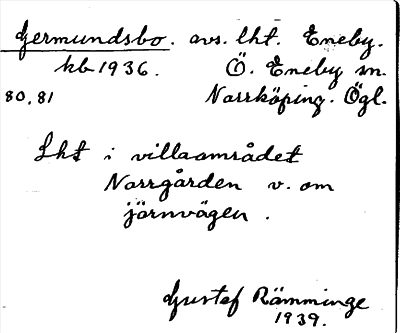 Germundsbo. avs. lht. Eneby.
kb 1936. Ö. Eneby sn.
80, 81 Norrköping. Ögl.
Lht i villaområdet
Norrgården v. om
järnvägen.
Gustaf Rämminge
1939.